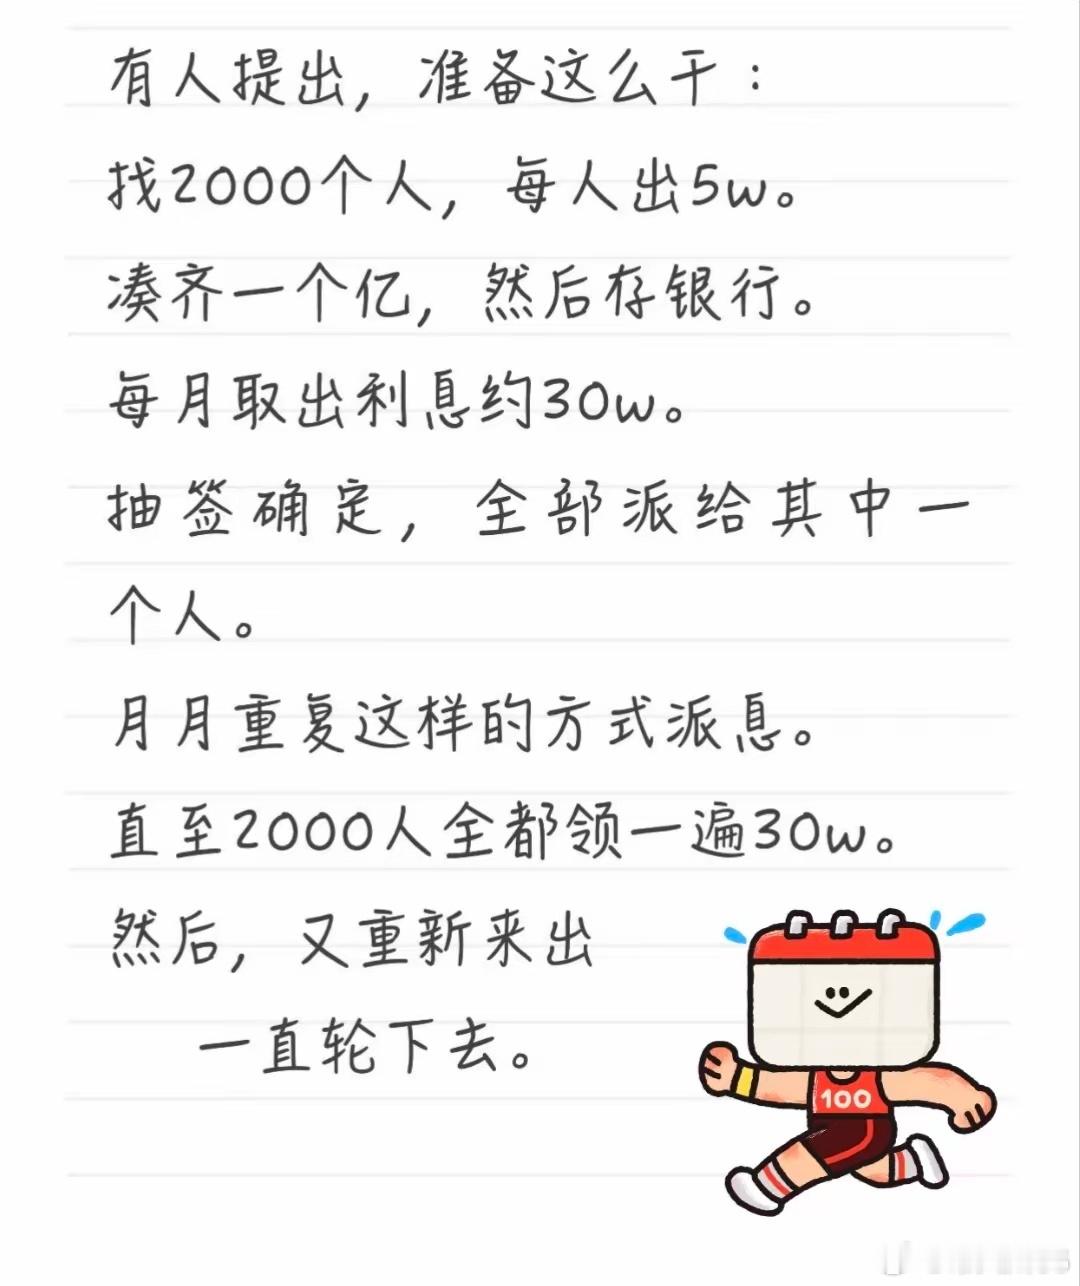 有人提出，准备这么干：
找2000个人，每人出5w。
凑齐一个亿，然后存银行。
每月取出利息约30w。
抽签确定，全部派给其中一
个人。
月月重复这样的方式派息。
直至2000人全都领一遍30w。
然后，又重新来出
一直轮下去。
100